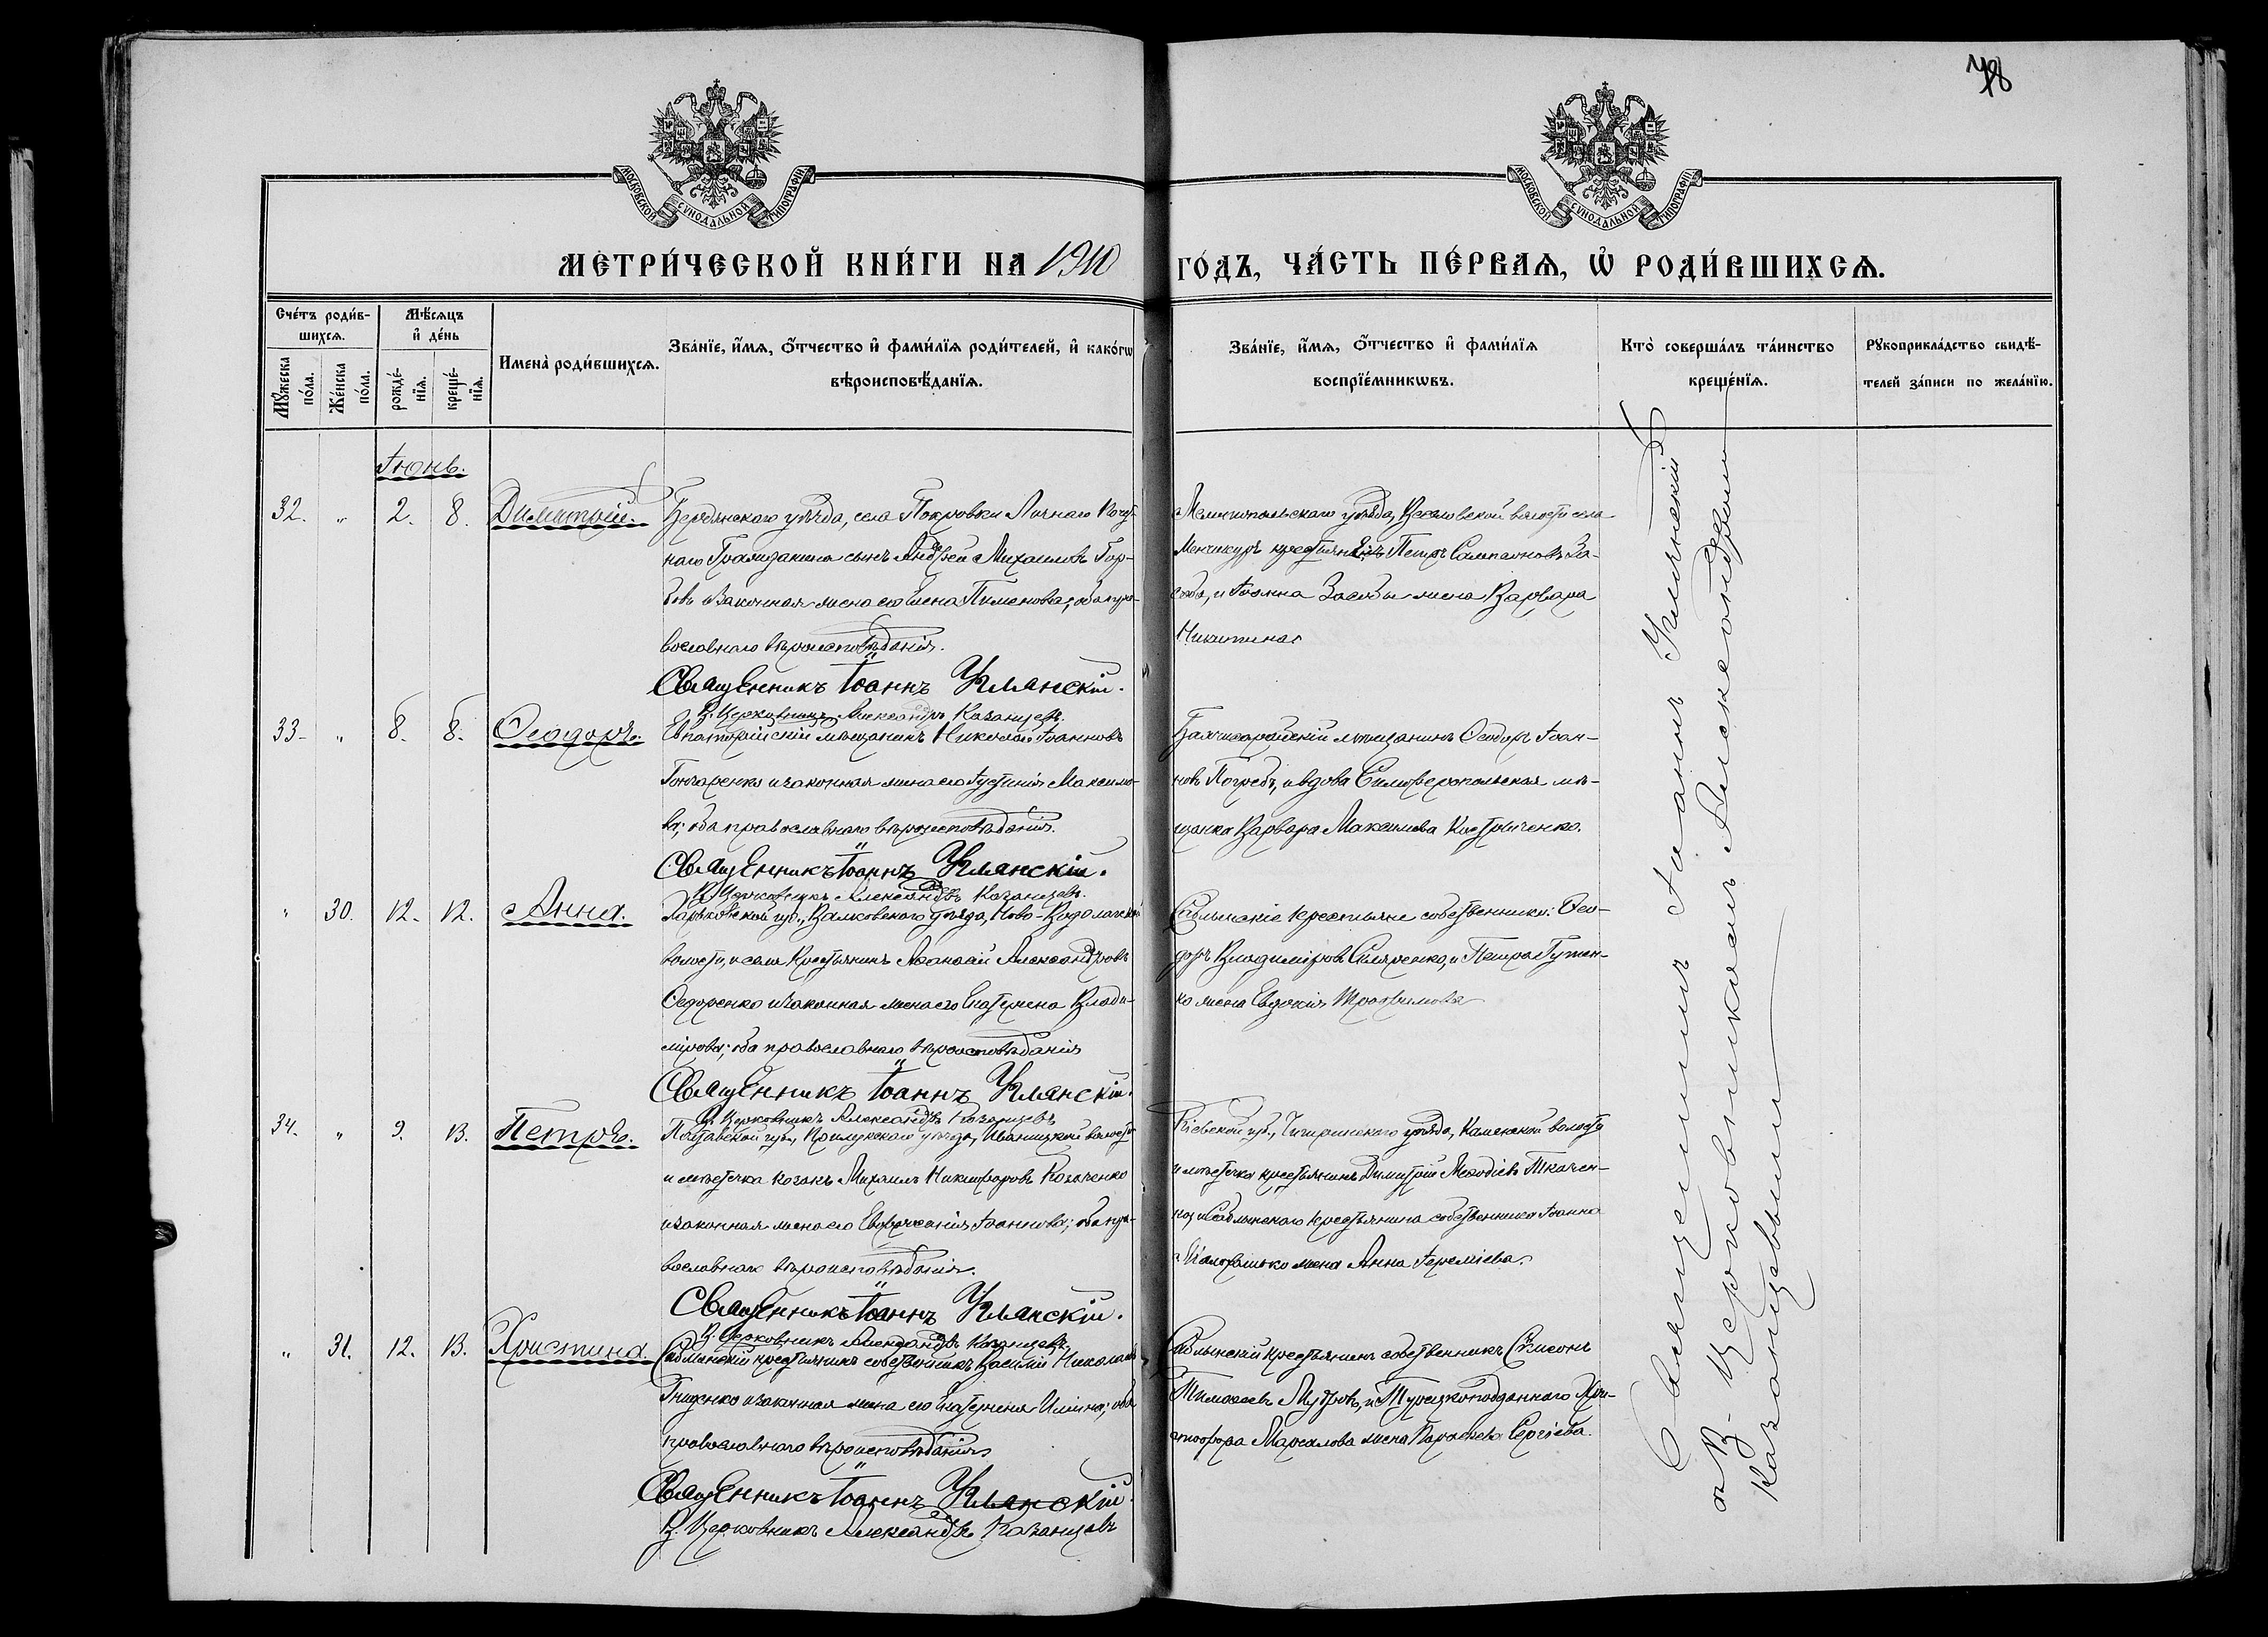 78
МОСКОВСКОЙ СѴНОДАЛЬНОЙ ТИПОГРАФІИ
МОСКОВСКОЙ СѴНОДАЛЬНОЙ ТИПОГРАФІИ
МЕТРИ́ЧЕСКОЙ КНИ́ГИ НА 1910 ГО́ДЪ, ЧА́СТЬ ПЕ́РВАѦ, Ѡ҆ РОДИ́ВШИХСѦ.
Сче́тъ роди́в-
шихсѧ.
Мꙋ́жеска
по́ла.
Же́нска
по́ла.
Мѣ́сѧцъ
и҆ де́нь
рожде́-
нїѧ.
креще́-
нїѧ.
Имена̀ роди́вшихсѧ.
Зва́нїе, и҆́мѧ, ѻ҆́тчество и҆ фами́лїѧ роди́телей, и҆ како́гѡ
вѣроисповѣ́данїѧ.
Зва́нїе, и҆́мѧ, ѻ҆́тчество и҆ фами́лїѧ
воспрїе́мникѡвъ.
Кто̀ соверша́лъ та́инство
креще́нїѧ.
Рꙋкоприкла́дство свидѣ́-
телей за́писи по жела́нїю.
Іюнь.
32. " 2. 8. Димитрій.
Бердянскаго уѣзда, села Покровки Личнаго Почет-
наго Гражданина сынъ Андрей Михаиловъ Гор-
бовъ и законная жена его Елена Пименова; оба пра-
вославнаго вѣроисповѣданія.
Священникъ Іоаннъ Уманскій.
В. Церковникъ Александръ Казанцевъ.
Мелитопольскаго уѣзда, Веселовской волости села
Менчикуръ крестьянинъ Петръ Сампсоновъ За-
соба, и Іоанна Засобы жена Варвара
Никитина
33. " 8. 8. Ѳеодоръ.
Евпаторійскій мѣщанинъ Николай Іоанновъ
Гончаренко и законная жена его Іустинія Максимо-
ва; оба православнаго вѣроисповѣданія.
Священникъ Іоаннъ Уманскій.
В. Церковникъ Александръ Казанцевъ.
Бахчисарайскій мѣщанинъ Ѳеодоръ Іоан-
новъ Погребъ, и вдова Симферопольская мѣ-
щанка Варвара Максимова
" 30. 12. 12. Анна.
Харьковской губ., Валковского уѣзда, Ново-Водолажской
волости, и села Крестьянинъ Аѳанасій Александровъ
Ѳедоренко и законная жена его Екатерина Влади-
мірова; оба православнаго вѣроисповѣданія
Священникъ Іоаннъ Уманскій.
В. Церковникъ Александръ Казанцевъ
Саблынскіе крестьяне собственники: Ѳео-
доръ Владиміровъ Скляренко, и Петра Гутен-
ко жена Евдокія Трофимова
34. " 9. 13. Петръ.
Полтавской губ., Прилукскаго уѣзда, Иваницкой волости
и мѣстечка козакъ Михаилъ Никифоровъ Козаченко
и законная жена его Евфросинія Іоаннова; оба пра-
вославнаго вѣроисповѣданія.
Священникъ Іоаннъ Уманскій.
В. Церковникъ Александръ Казанцевъ
Кіевской губ., Чигиринскаго уѣзда, Каменской волости
и мѣстечка крестьянинъ Димитрій Меѳодіевъ Ткачен-
ко, и Саблынскаго крестьянина собственника Іоанна
жена Анна Іереміева.
" 31. 12. 13. Христина.
Саблынскій крестьянинъ собственникъ Василій Николаевъ
Гнищенко и законная жена его Екатерина Ильина; оба
православнаго вѣроисповѣданія
Священникъ Іоаннъ Уманскій.
В. Церковникъ Александръ Казанцевъ
Саблынскій крестьянинъ собственникъ Сѵмеонъ
Тимоѳеевъ Мудровъ, и Турецкоподданнаго Хри-
стофора жена Параскева Сергіева.
Священникъ Іоаннъ Уманскій
и В. Церковникомъ Александромъ
Казанцевымъ